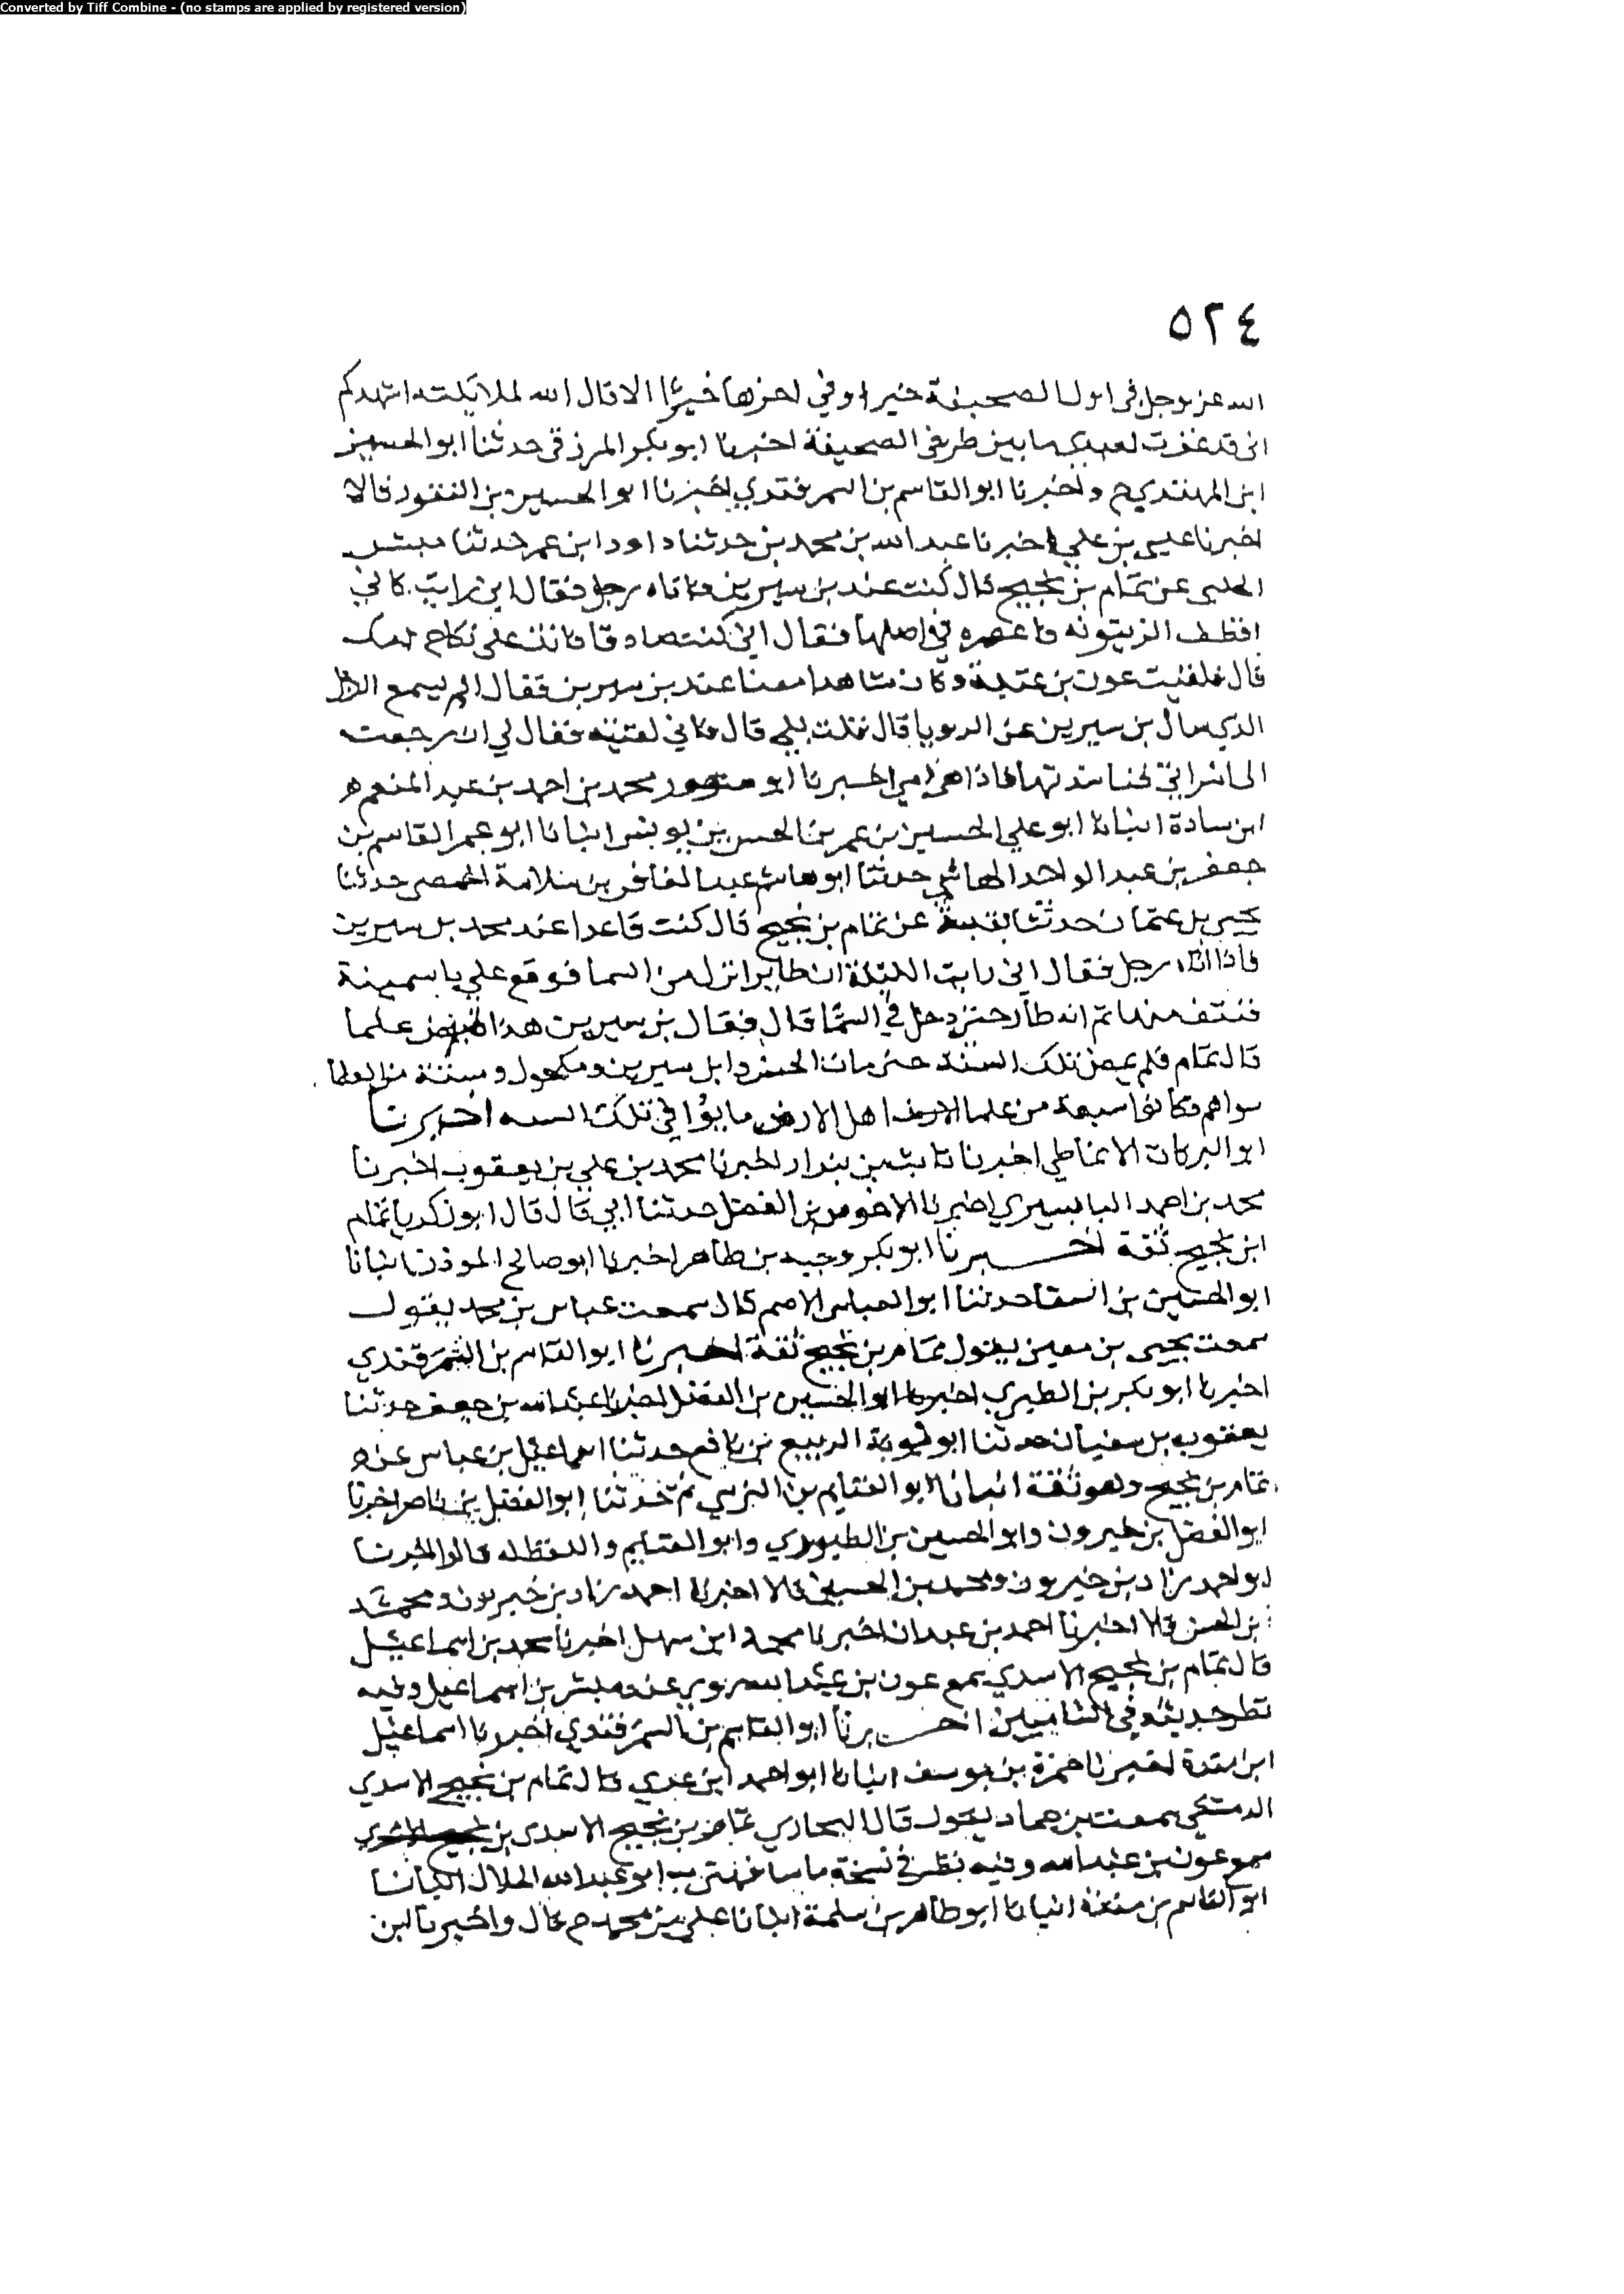 Converted by Tiff Combine - (no stamps are applied by registered version)
٥٢٤
الله عز وجل في اول الصحيفة خيرا وفي اخرها خيرا الا قال الله لملايكته اشهدكم
اني قد غفرت لعبدي ما بين طرفي الصحيفة اخبرنا ابو بكر المرزقي حدثنا ابو الحسين
ابن المهتدي ح واخبرنا ابو القاسم بن السمرقندي اخبرنا ابو الحسين بن النقور قالا
اخبرنا عيسى بن علي اخبرنا عبد الله بن محمد بن حدثنا داود ابن عمر حدثنا مبشر
الحلبي عن تمام بن نجيح قال كنت عند بن سيرين فاتاه رجل فقال اني رايت كاني
اقطف الزيتونه فاعصره في اصلها فقال ان كنت صادقا فانت على نكاح امك
قال فلقيت عون بن عتبة وكان شاهدا معنا عند بن سيرين فقال الم تسمع الرجل
الذي سال بن سيرين عن الرويا قال قلت بلى قال فاني لقيته فقال لي ان رجعت
الى امراتي فناشدتها فاذا هي امي اخبرنا ابو منصور محمد بن احمد بن عبد المنعم
ابن سادة انبانا ابو علي الحسين بن عمر بن الحسن بن يونس انبانا ابو عمر القاسم بن
جعفر بن عبد الواحد الهاشمي حدثنا ابو هاشم عبد الغافر بن سلامة الحمصي حدثنا
يحيى بن عثمان حدثنا بقية عن تمام بن نجيح قال كنت قاعدا عند محمد بن سيرين
فاذا اتاه رجل فقال اني رايت الليلة ان طايرا نزل من السما فوقع على ياسمينة
فنتف منها ثم انه طار حتى دخل في السما قال فقال بن سيرين هذا قبض علما
قال تمام فلم تمض تلك السنة حتى مات الحسن وابن سيرين ومكحول وستة من العلما
سواهم فكانوا سبعة من علما الارض اهل الارض ماتوا في تلك السنه اخبرنا
ابو البركات الانماطي اخبرنا ثابت بن بندار اخبرنا محمد بن علي بن يعقوب اخبرنا
محمد بن احمد البابسيري اخبرنا الاحوص بن الفضل حدثنا ابي قال قال ابو زكريا تمام
ابن نجيح ثقة اخبرنا ابو بكر وجيه بن طاهر اخبرنا ابو صالح الموذن انبانا
ابو الحسين بن السقا حدثنا ابو العباس الاصم قال سمعت عباس بن محمد يقول
سمعت يحيى بن معين يقول تمام بن نجيح ثقة اخبرنا ابو القاسم بن السمرقندي
اخبرنا ابو بكر بن الطبري اخبرنا ابو الحسين بن الفضل اخبرنا عبد الله بن جعفر حدثنا
يعقوب بن سفيان حدثنا ابو توبة الربيع بن نافع حدثنا اسماعيل بن عياش عن
تمام بن نجيح وهو ثقة انبانا ابو الغنايم بن النرسي ثم حدثنا ابو الفضل بن ناصر اخبرنا
ابو الفضل بن خيرون وابو الحسين بن الطيوري وابو الغنايم واللفظ له قالوا اخبرنا
ابو احمد زاد بن خيرون ومحمد بن الحسن قالا اخبرنا احمد زاد بن خيرون ومحمد
بن الحسن قالا اخبرنا احمد بن عبدان اخبرنا محمد ابن سهل اخبرنا محمد بن اسماعيل
قال تمام بن نجيح الاسدي سمع عون بن عبد الله روى عنه مبشر بن اسماعيل وفيه
نظر حديثه في الشاميين اخبرنا ابو القاسم بن السمرقندي اخبرنا اسماعيل
ابن مسعدة اخبرنا حمزة بن يوسف انبانا ابو احمد ابن عدي قال تمام بن نجيح الاسدي
الدمشقي سمعت بن حماد يقول قال البخاري تمام بن نجيح الاسدي
سمع عون بن عبد الله وفيه نظر في نسخة ما ابو عبد الله الخلال انبانا
ابو القاسم بن منده انبانا ابو طاهر بن سلمة انبانا علي بن محمد ح قال واخبرنا ابن